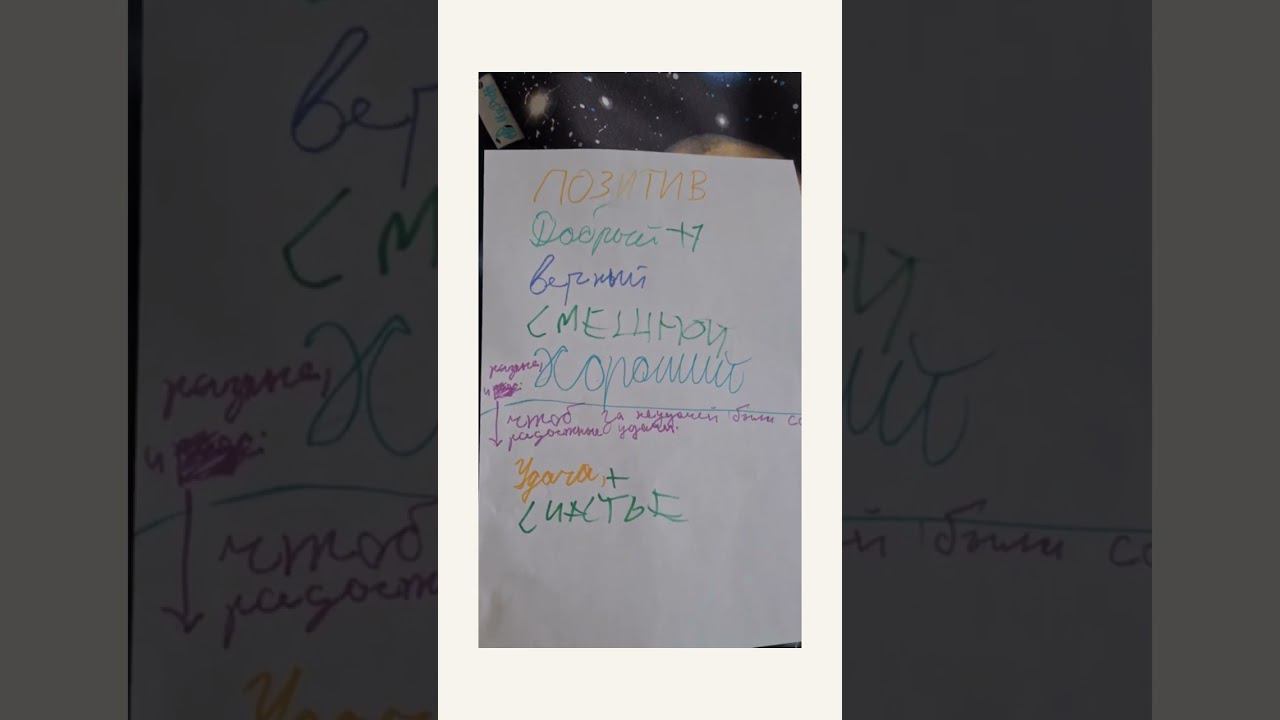 ПОЗИТИВ
Добрый +1
верный
СМЕШНОЙ
Хороший
и
чтоб за неудачей были со
радостные удачи.
Удача, +
СЧАСТЬЕ